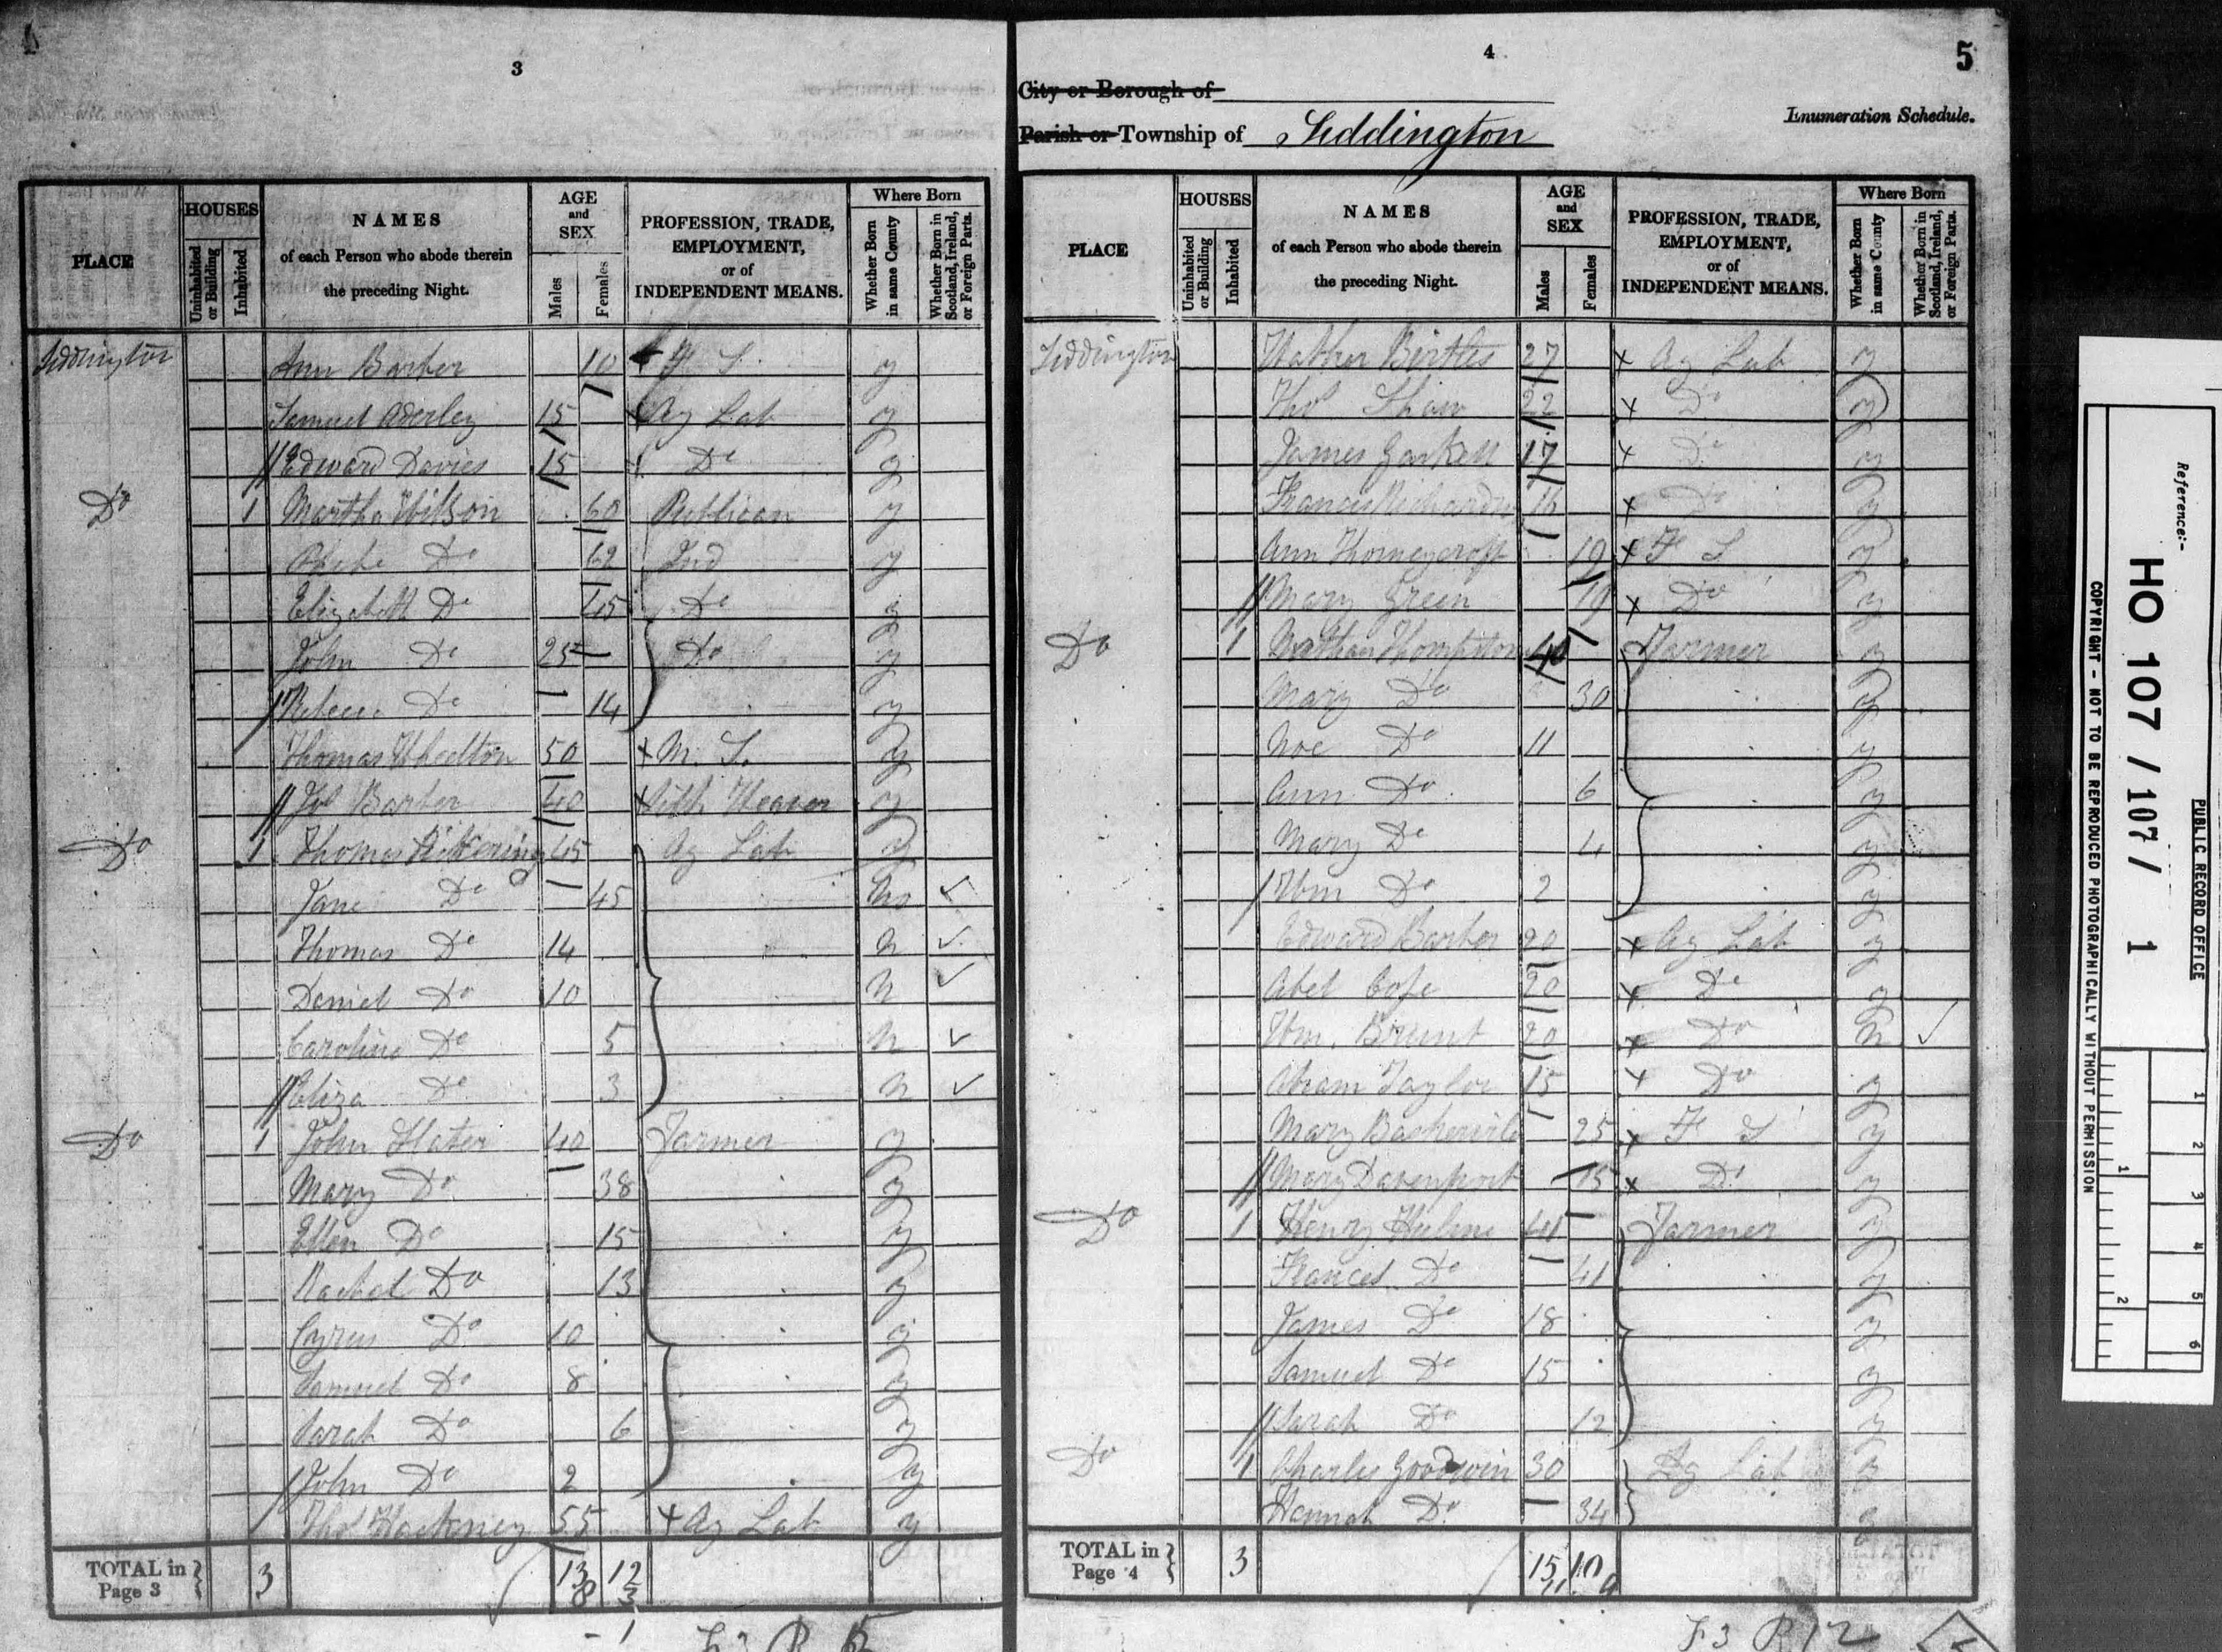 3
PLACE
HOUSES
Uninhabited or Building
Inhabited
NAMES
of each Person who abode therein
the preceding Night.
AGE
and
SEX
Males
Females
PROFESSION, TRADE,
EMPLOYMENT,
or of
INDEPENDENT MEANS.
Where Born
Whether Born in same County
Whether Born in Scotland, Ireland, or Foreign Parts.
Siddington Ann Barber 10 F. S. y
Samuel Aderley 15 Ag Lab y
Edward Davies 15 Do y
Do 1 Martha Wilson 60 Publican y
Do 62 Ind y
Elizabeth Do 45 Do y
John Do 25 Do y
Do 14 y
Thomas Wheelton 50 + M. S. y
Barber 40 Weaver y
Do 1 Thomas Pickering 45 Ag Lab y
Jane Do 45 No ✓
Thomas Do 14 N ✓
Daniel Do 10 N ✓
Caroline Do 5 N ✓
Eliza Do 3 N ✓
Do 1 John Slater 40 Farmer y
Mary Do 38 y
Ellen Do 15 y
Rachel Do 13 y
Cyrus Do 10 y
Samuel Do 8 y
Sarah Do 6 y
John Do 2 y
Thos Hackney 55 + Ag Lab y
TOTAL in Page 3 3 13 12
8 3
4
5
City or Borough of
Enumeration Schedule.
Parish or Township of Siddington
PLACE
HOUSES
Uninhabited or Building
Inhabited
NAMES
of each Person who abode therein
the preceding Night.
AGE
and
SEX
Males
Females
PROFESSION, TRADE,
EMPLOYMENT,
or of
INDEPENDENT MEANS.
Where Born
Whether Born in same County
Whether Born in Scotland, Ireland, or Foreign Parts.
Siddington Birtles 27 x Ag Lab y
Thos Shaw 22 x Do y
James Gaskell 17 x Do y
Francis 16 x Do y
Ann Thorneycroft 19 x F S y
Mary Green 19 x Do y
Do 1 Nathan 40 Farmer y
Mary Do 30 y
Noe Do 11 y
Ann Do 6 y
Mary Do 4 y
Wm Do 2 y
Edward Barber 20 x Ag Lab y
Abel Cope 20 x Do y
Wm. Brunt 20 x Do N ✓
Abram Taylor 15 x Do y
Mary 25 x F S y
Mary Davenport 15 x Do y
Do 1 Henry Hulme 41 Farmer y
Frances Do 41 y
James Do 18 y
Samuel Do 15 y
Sarah Do 12 y
Do 1 Charles Goodwin 30 Ag Lab y
Hannah Do 34 y
TOTAL in Page 4 3 15 10
11 9
Reference:-
HO 107 / 107 / 1
PUBLIC RECORD OFFICE
COPYRIGHT - NOT TO BE REPRODUCED PHOTOGRAPHICALLY WITHOUT PERMISSION
1 2 3 4 5 6
1 2